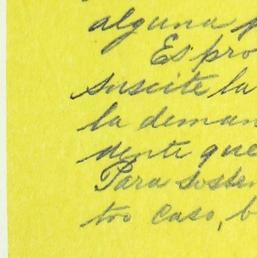 alguna p
Es pro
suscite la
la deman
dente que
Para sosten
tro caso, b